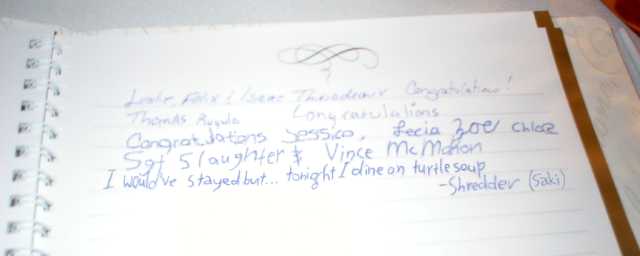 Leslie, Felix & Isaac Thibodeaux Congratulations!
Thomas Ruyula Congratulations
Congratulations Jessica, Lecia Zoe Chloe
Sgt Slaughter & Vince McMahon
I would've stayed but... tonight I dine on turtle soup
-Shredder (Saki)